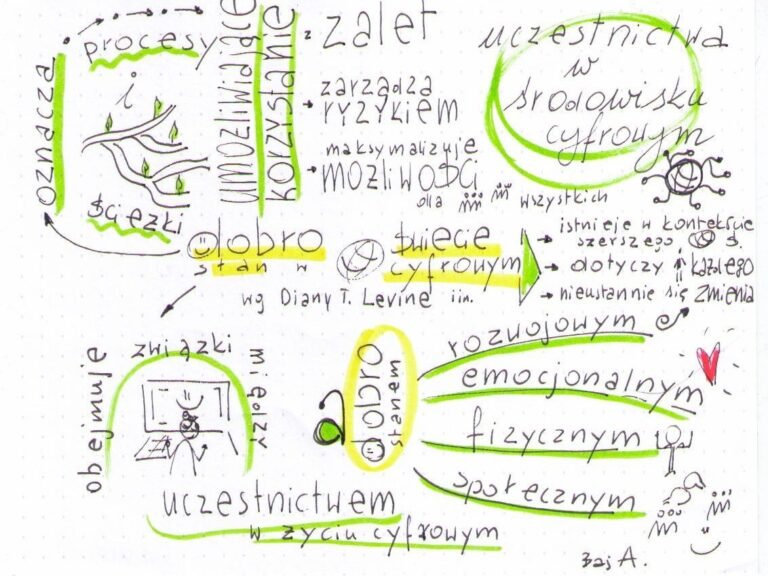 oznacza
procesy
i
ścieżki
umożliwiające
korzystanie
z zalet
zarządza
ryzykiem
maksymalizuje
możliwości
dla wszystkich
uczestnictwa
w
środowisku
cyfrowym
dobro
stan w
świecie
cyfrowym
wg Diany T. Levine iin.
istnieje w kontekście
szerszego ś.
dotyczy każdego
nieustannie się zmienia
obejmuje
związki
między
uczestnictwem
w życiu cyfrowym
dobro
stanem
rozwojowym
emocjonalnym
fizycznym
społecznym